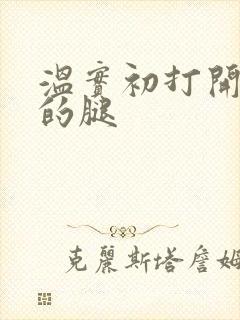 溫實初打開
的腿
克麗斯塔詹姆